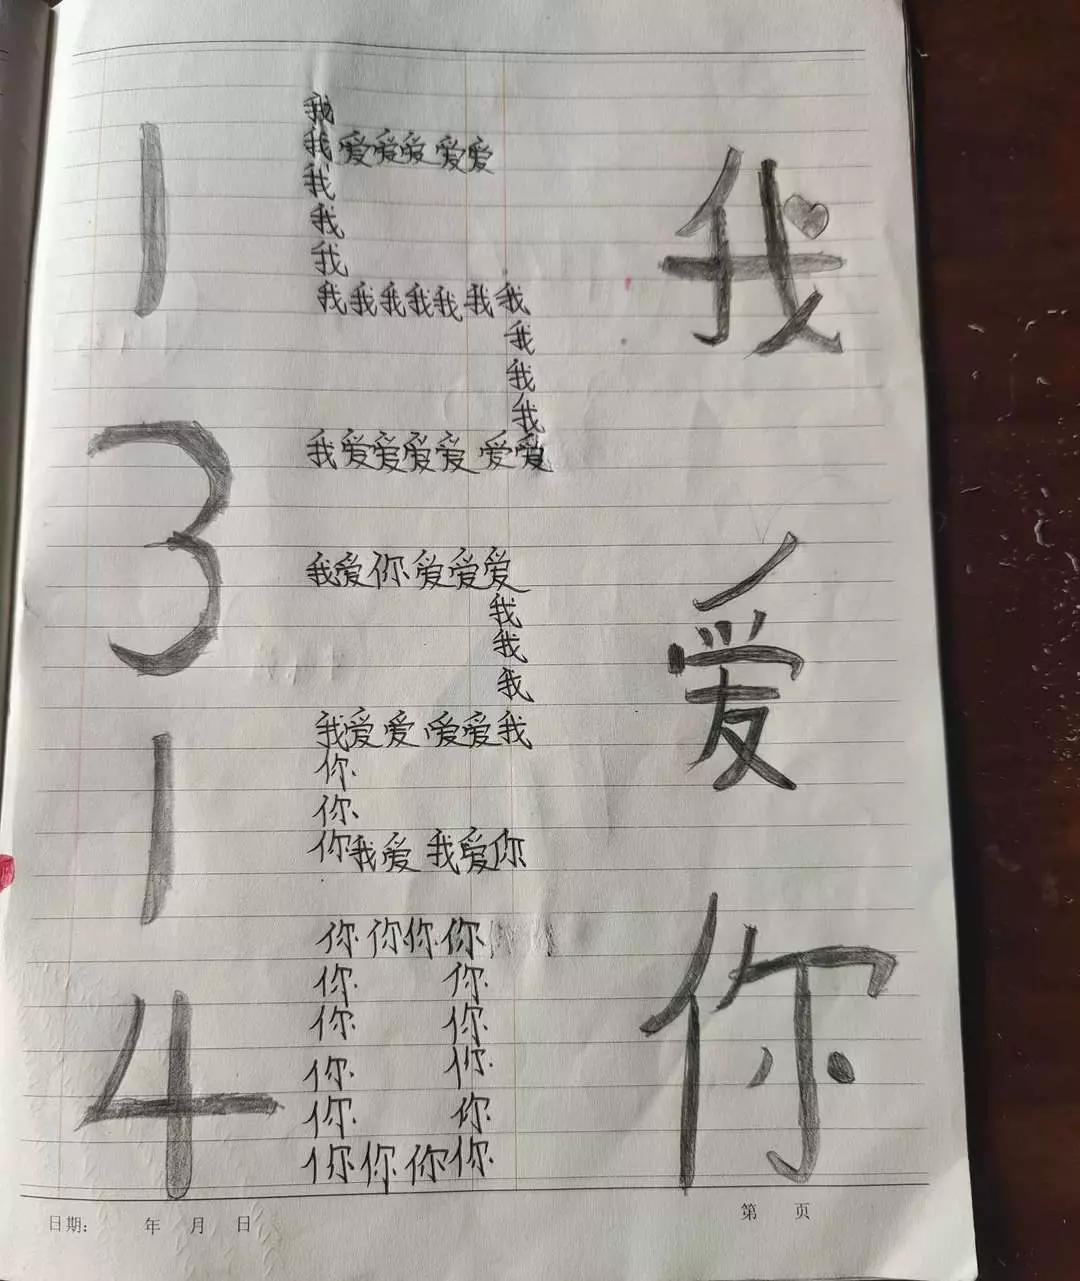 1
3
1
4
我
我爱爱爱 爱爱
我
我
我
我我我我我 我我
我
我
我
我爱爱爱爱 爱爱
我爱你爱爱爱
我
我
我
我爱爱 爱爱我
你
你
你我爱 我爱你
你你你你
你 你
你 你
你 你
你 你
你你你你
我
爱
你
日期: 年 月 日
第 页